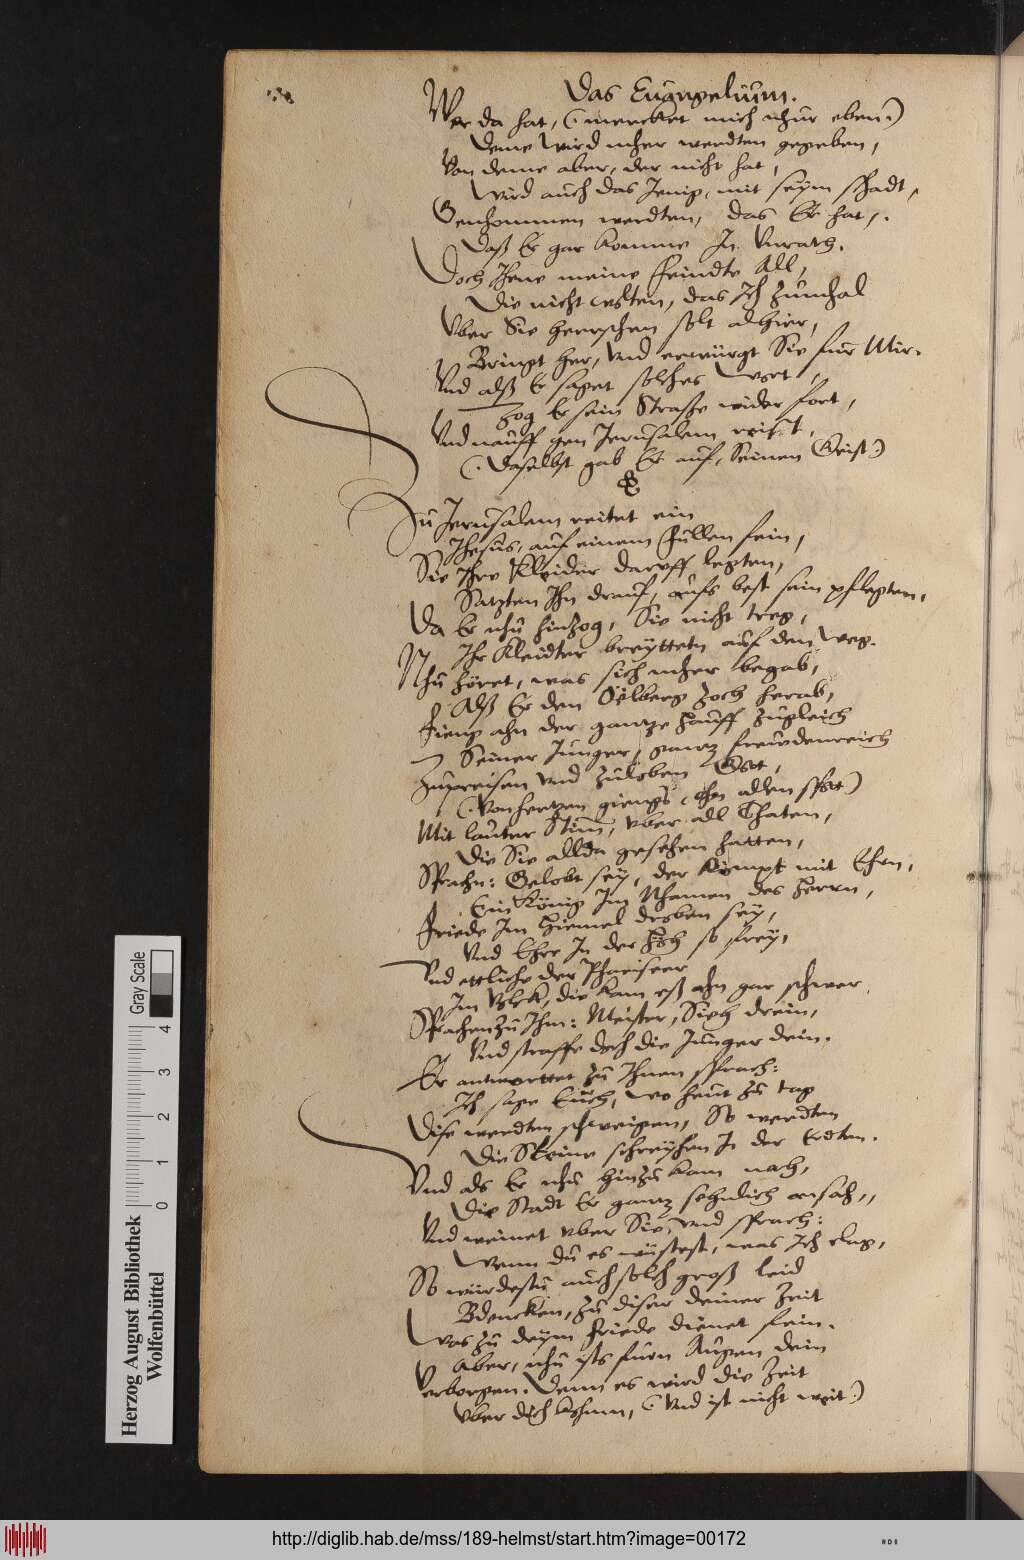 Das Euangelium.
Wer da hat, (mercket mich nhur eben.)
Deme wird mher werdten gegeben,
Von deme aber, der nicht hat,
Wird auch das Jenig, mit seym schadt,
Genhommen werdten, das Er hat,
Daß Er gar komme In Vnrath.
Doch Ihene meine Feindte All,
Die nicht wolten, das Ich zumhal
Vber Sie herrschen solt alhier,
Bringt her, Vnd erwürgt Sie fur Mir.
Vnd alß Er saget solches wort,
Zog Er sein Straße wider fort,
Vnd nauff gen Jerusalem reist,
(Daselbst gab Er auf, Seinen Geist.)
Zu Jerusalem reitet ein
Jhesus, auf einem Füllen fein,
Sie Ihre Kleider daruff legten,
Satzten Ihn drauf, aufs best sein pflegten,
Da Er nhu hinzog, Sie nicht treg,
Ihr Kleidter breytteten auf den weg.
Nhu höret, was sich mher begab,
Alß Er den Oelberg zoch herab,
Fieng ahn der gantze Hauff zugleich
Seiner Junger, gantz freudenreich
Zupreisen Vnd zuloben Gott,
(Von hertzen giengs, ohn allen spott)
Mit lauter Stim, vber all Thaten,
Die Sie allda gesehen hatten,
Sprachn: Gelobt sey, der kömpt mit Ehrn,
Ein König Im Nhamen des Herrn,
Friede Im Hiemel droben sey,
Vnd Ehre In der Höh so frey,
Vnd ettliche der Phariseer
Im Volck, die kam eß ahn gar schwer,
Sprachen zu Ihm: Meister, Sieh drein,
Vnd straffe doch die Junger dein.
Er antworttet zu Ihnen sprach:
Ich sage Euch, wo heut zu tag
Dise werdten schweigen, So werdten
Die Steine schreyhen In der Erdten.
Vnd als Er nhu hinzu kam nach,
Die Stadt Er gantz sehnlich ansah,
Vnd weinet vber Sie, vnd sprach:
Wenn du es wüstest, was Ich clag,
So würdestu auch solch groß leid
Bdencken, zu diser deiner Zeit
Was zu deym Friede dienet fein.
Aber, nhu ists furn Augen dein
Verborgen. Denn es wird die Zeit
Vber dich kohmn, (Vnd ist nicht weit.)
Herzog August Bibliothek
Wolfenbüttel
Gray Scale
0 1 2 3 4
http://diglib.hab.de/mss/189-helmst/start.htm?image=00172